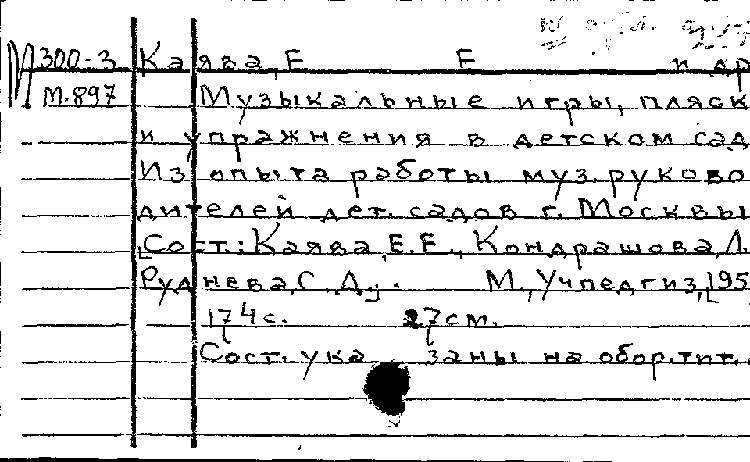 М300-3 Каява, Е Е и др
М.897 Музыкальные игры, пляск
и упражнения в детском сад
Из опыта работы муз. руково
дителей дет. садов г. Москвы
[Сост.: Каява, Е.Е., Кондрашова, Л.
Руднева, С. Д.]. М., Учпедгиз, [195
174 с. 27 см.
Сост. ука заны на обор. тит.